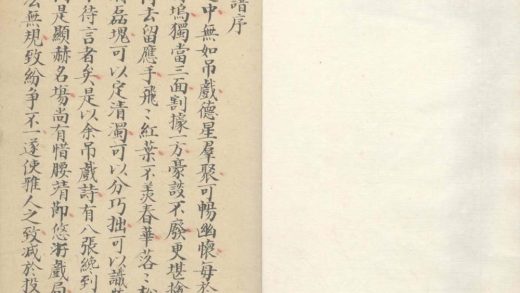 譜序
中無如吊戲德星羣聚可暢幽懷每於
塢獨當三面割據一方豪談不廢更堪
去留應手飛〻紅葉不羡春華落〻
磊塊可以定清濁可以分巧拙可以識
待言者矣是以余吊戲詩有八張纔到
是顯赫名場尚有惜腰猜
悠游戲局
無規致紛爭不一遂使雅人之致減於投